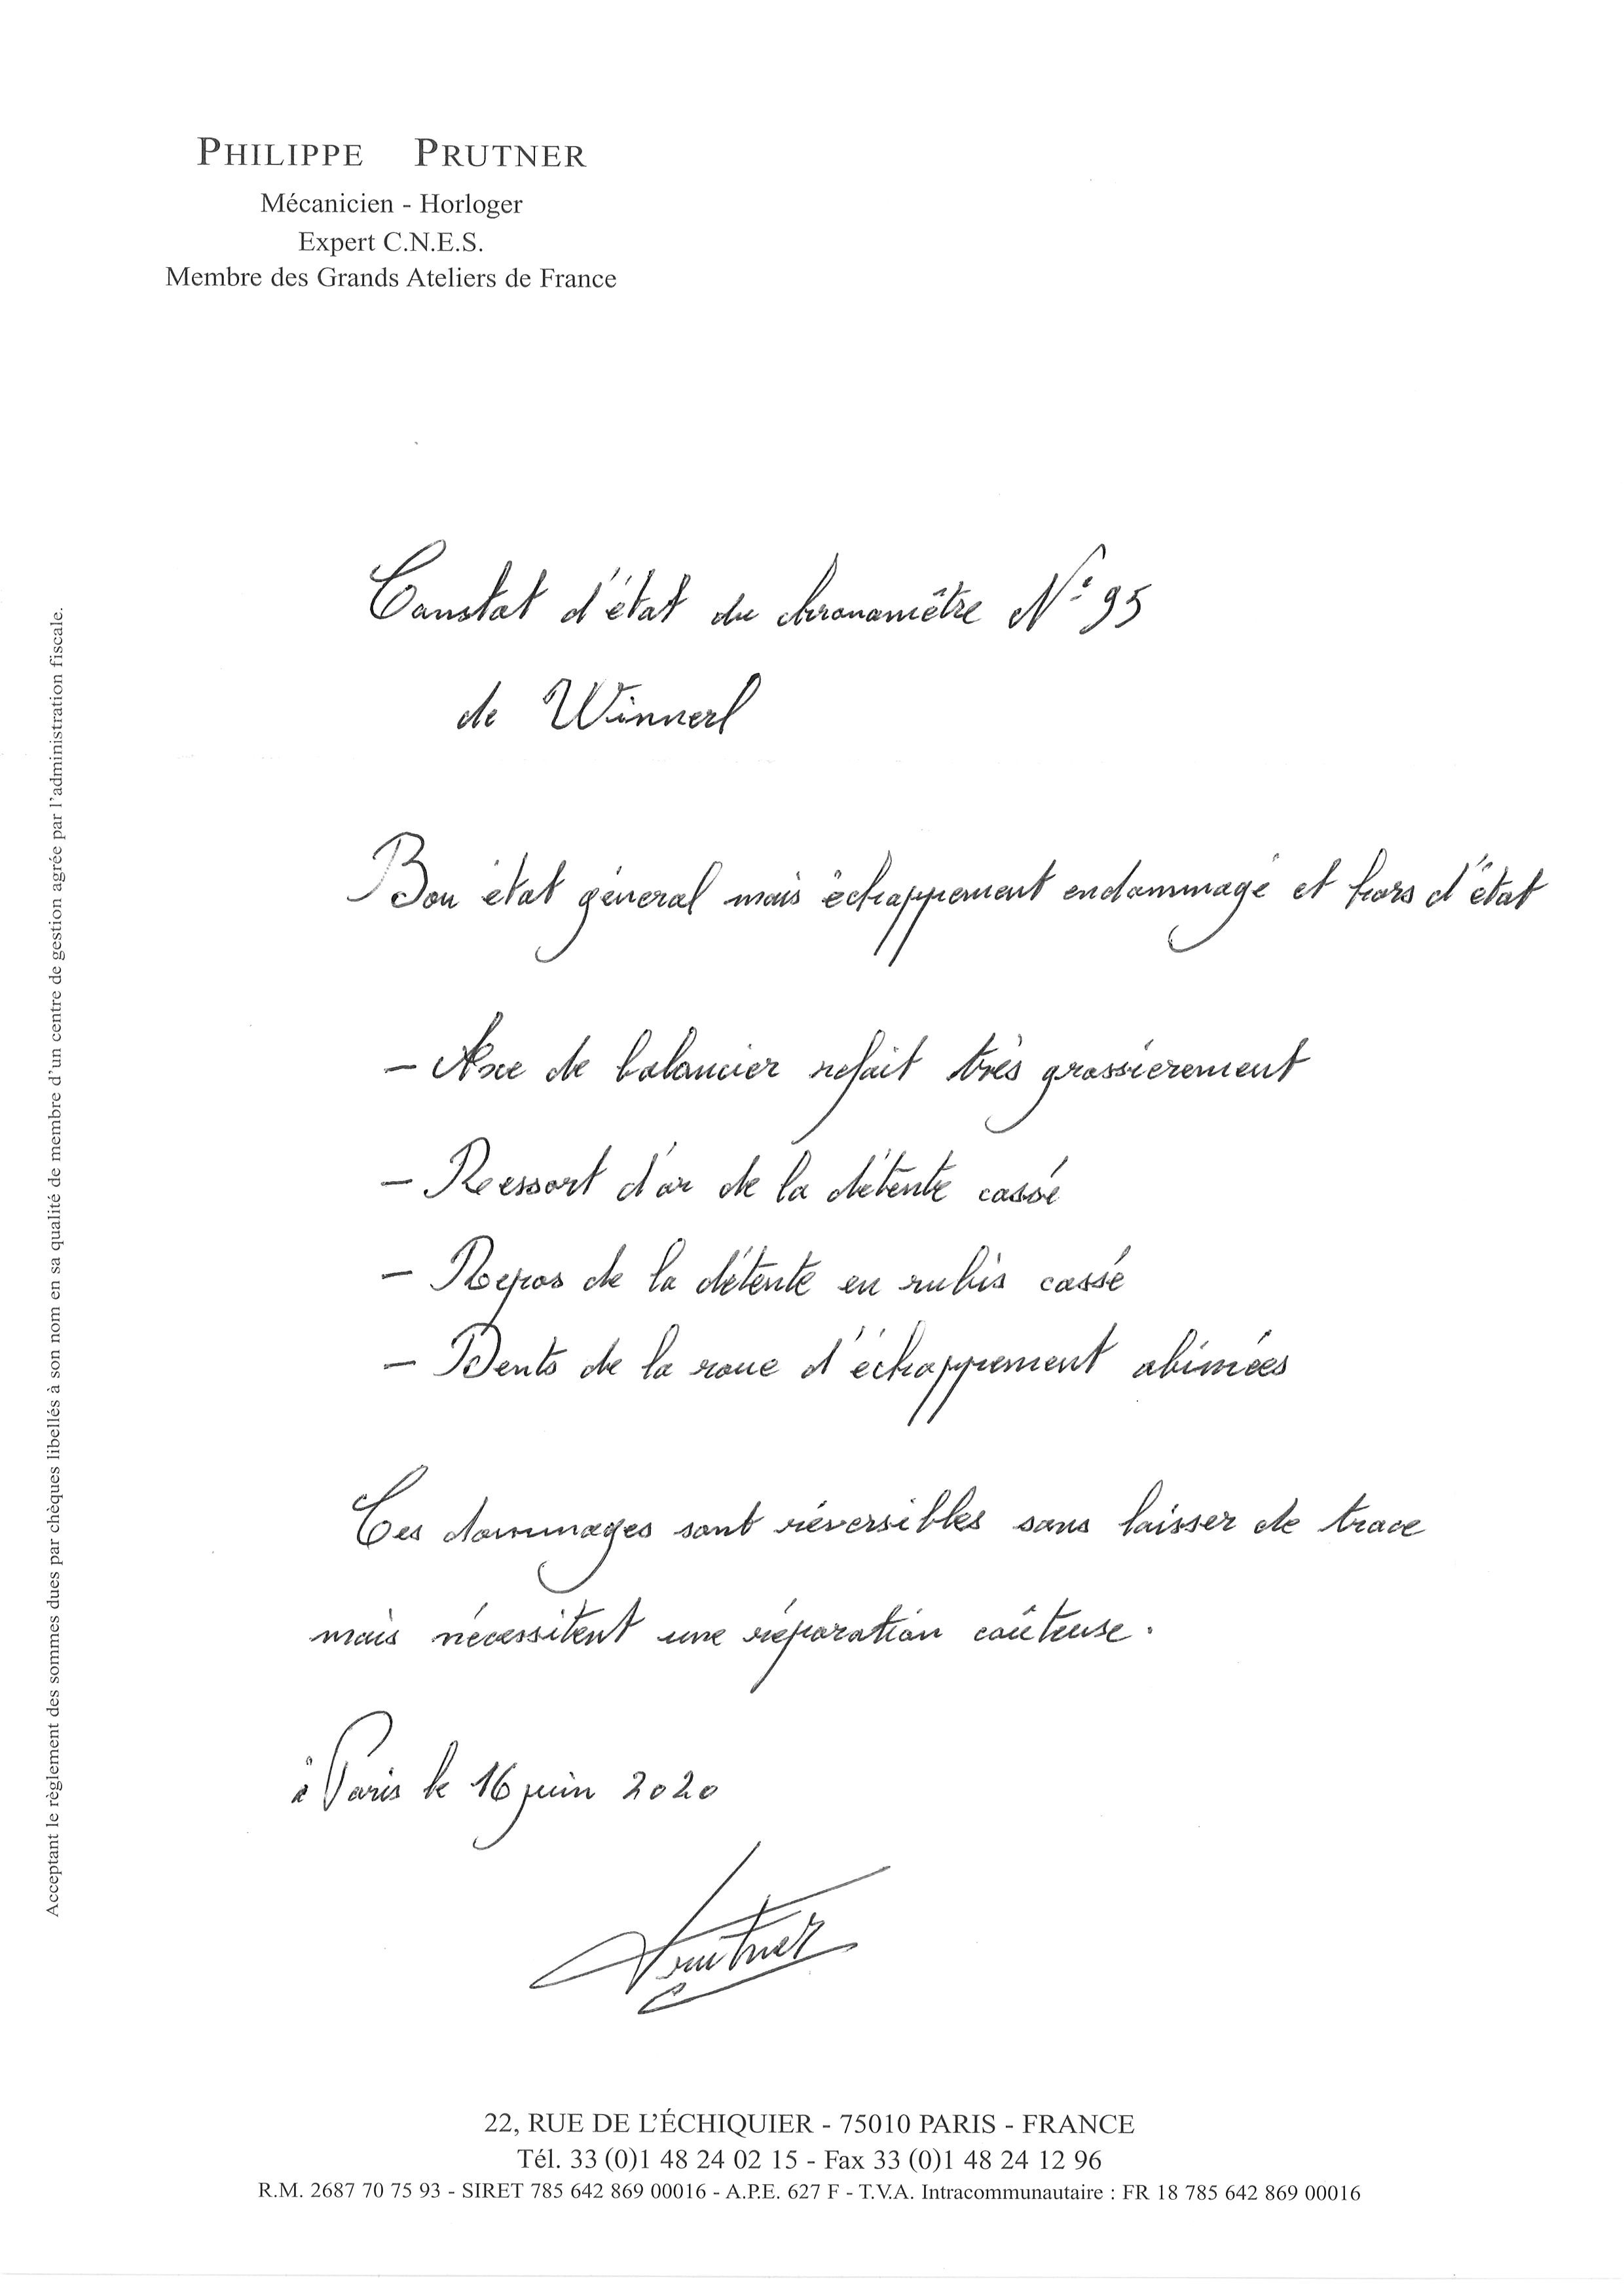 PHILIPPE PRUTNER
Mécanicien - Horloger
Expert C.N.E.S.
Membre des Grands Ateliers de France
Constat d'état du chronomètre N° 95
de Winnerl
Bon état général mais échappement endommagé et hors d'état
- Axe de balancier refait très grossièrement
- Ressort d'or de la détente cassé
- Repos de la détente en rubis cassé
- Dents de la roue d'échappement abimées
Ces dommages sont réversibles sans laisser de trace
mais nécessitent une réparation coûteuse.
à Paris le 16 juin 2020
Prutner
22, RUE DE L'ÉCHIQUIER - 75010 PARIS - FRANCE
Tél. 33 (0)1 48 24 02 15 - Fax 33 (0)1 48 24 12 96
R.M. 2687 70 75 93 - SIRET 785 642 869 00016 - A.P.E. 627 F - T.V.A. Intracommunautaire : FR 18 785 642 869 00016
Acceptant le règlement des sommes dues par chèques libellés à son nom en sa qualité de membre d'un centre de gestion agrée par l'administration fiscale.